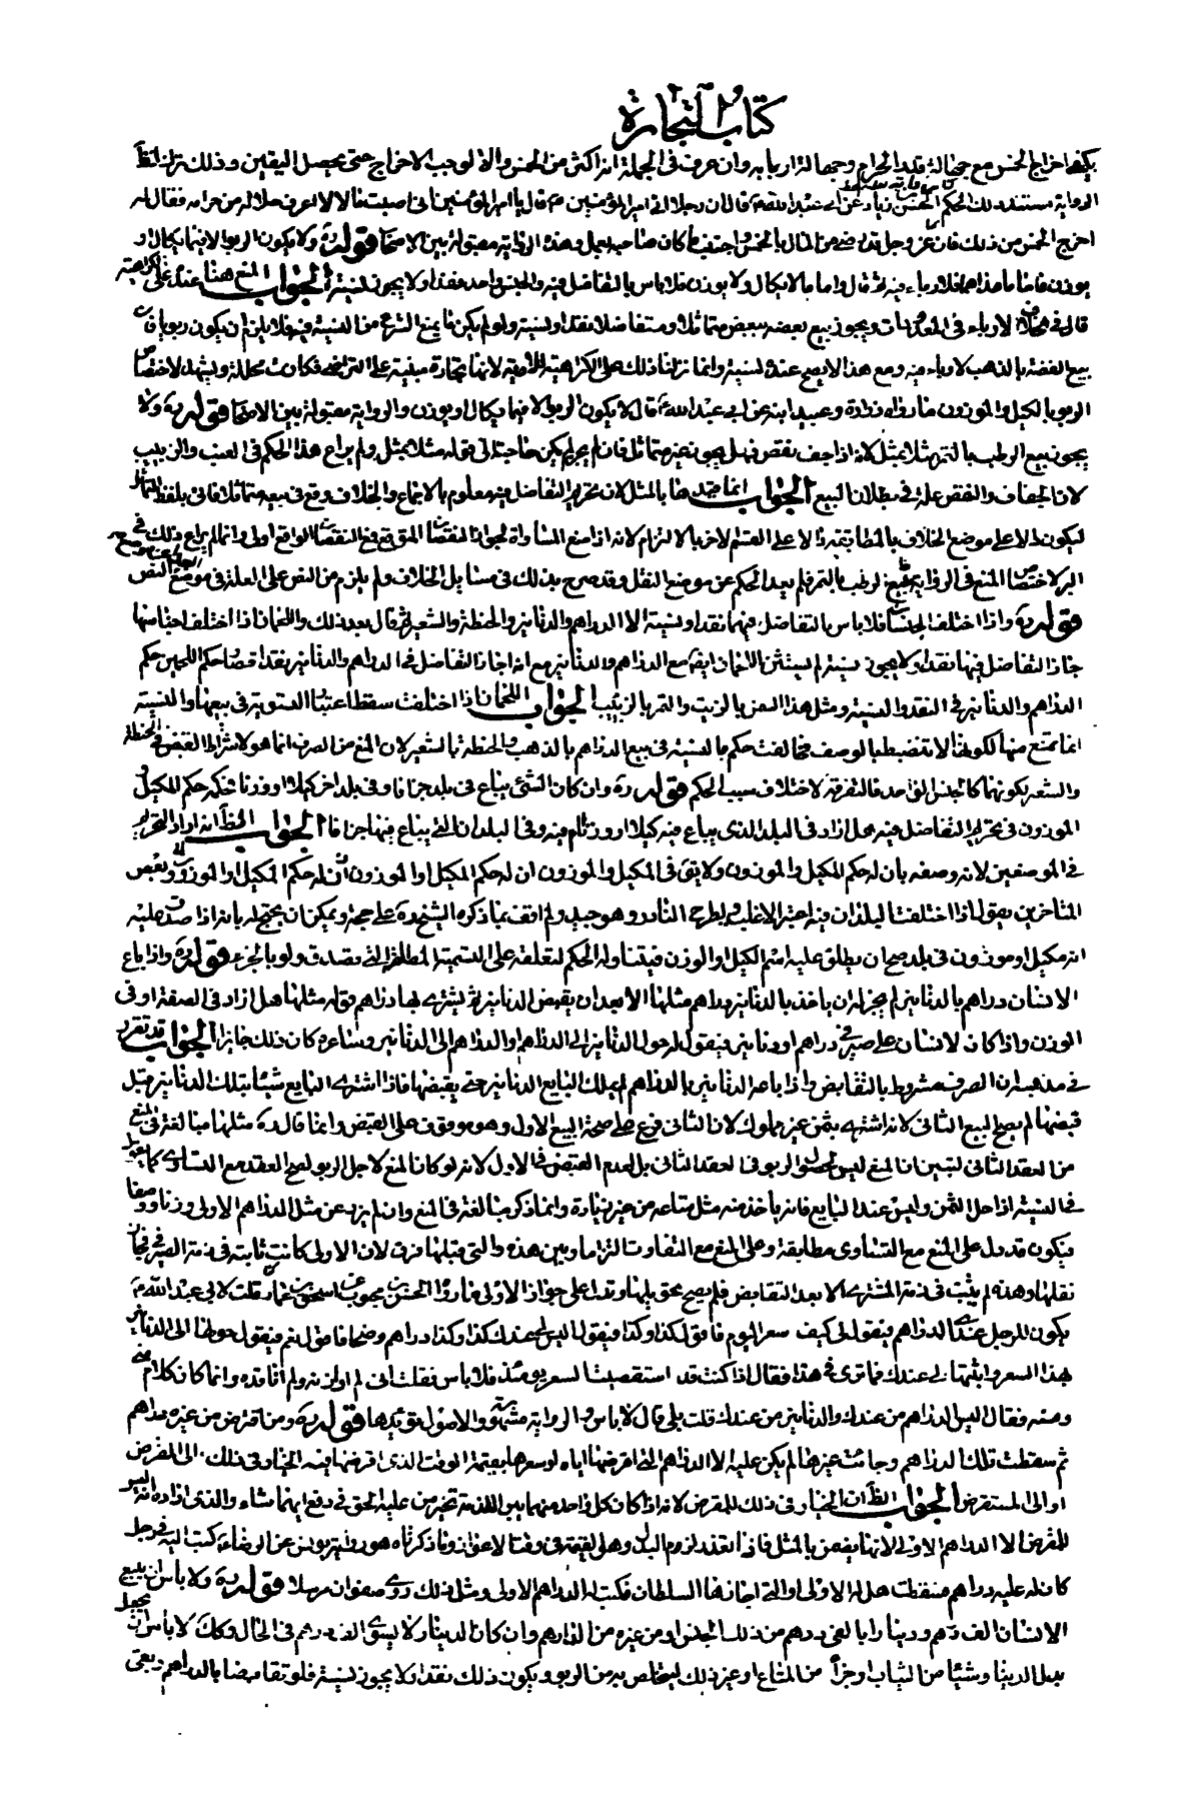 كتاب التجارة
يكفي اخراج الخمس مع جهالة قدر الحرام وجهالة اربابه وان عرف في الجملة انه اكثر من الخمس والا لوجب الاخراج حتى يحصل اليقين وذلك
الرواية مستند ذلك الحكم الحسن زياد عن ابي عبد الله قال ان رجلا اتى امير المؤمنين ع قال يا امير المؤمنين اني اصبت مالا لا اعرف حلاله من حرامه فقال له
اخرج الخمس من ذلك فان الله عز وجل قد رضي من المال بالخمس واجتنب ما كان صاحبه يعمل وهذه الرواية مقبولة بين الاصحاب قوله ره ولا يكون الربوا الا فيما يكال او
يوزن فاما ما عداهما فلا رباء فيه ثم قال واما ما لا يكال ولا يوزن فلا باس بالتفاضل فيه والجنس واحد نقدا ولا يجوز نسيئة الجواب المنع هنا عنده على الكراهية
قال في لا رباء في المعدودات ويجوز بيع بعضه ببعض متماثلا ومتفاضلا نقدا ونسيئة ولو لم يكن ما يمنع الشرع من النسيئة فيه فلا يلزم ان يكون ربويا فان
بيع الفضة بالذهب لا رباء فيه ومع هذا لا يصح عنده نسيئة وانما نزلنا ذلك على الكراهية لانها تجارة مبنية على التراضي فكانت محللة ويشهد لاختصاص
الربو بالكيل والموزون ما رواه زرارة وعبيد ابنه عن ابي عبد الله ع قال لا يكون الربوا الا فيما يكال او يوزن والرواية مقبولة بين الاصحاب قوله ره ولا
يجوز بيع الرطب بالتمر مثلا بمثل لانه اذا جف نقص فهل يجوز غير متماثل فان لم يجز لم يكن حاجة الى قوله مثلا بمثل ولم يراع هذا الحكم في العنب والزبيب
لان الجفاف والنقص علة في بطلان البيع الجواب انما قيد هنا بالمثل لان تحريم التفاضل فيه معلوم بالاجماع والخلاف وقع في بيعه متماثلا فاتى بلفظ التماثل
ليكون دالا على موضع الخلاف بالمطابقة ودالا على القسم الاخر بالالتزام لانه اذا منع المساواة لجواز النقصان المتوقع فمع النقصان الواقع اولى وانما لم يراع ذلك في
البر لاختصاص المنع في الرواية ببيع الرطب بالتمر فلم يعد الحكم عن موضع النقل وقد صرح بذلك في مسايل الخلاف ولم يلزم من النص على العلة في موضع النص
قوله ره واذا اختلف الجنسان فلا باس بالتفاضل فيهما نقدا ونسيئة الا الدراهم والدنانير والحنطة والشعير ثم قال بعد ذلك واللحمان اذا اختلف اجناسها
جاز التفاضل فيها نقدا ولا يجوز نسيئة لم يستثن اللحمان ايضا مع الدراهم والدنانير مع انه اجاز التفاضل في الدراهم والدنانير نقدا فصار حكم اللحم حكم
الدراهم والدنانير في النقد والنسيئة ومثل هذا السمن بالزيت والتمر بالزبيب الجواب اللحمان اذا اختلفت سقط اعتبار التسوية في بيعها والنسيئة
انما تمتنع منها لكونها لا تنضبط بالوصف فخالفت حكم بالنسيئة في بيع الدراهم بالذهب والحنطة بالشعير لان المنع من الصرف انما هو لاشتراط القبض وفي الحنطة
والشعير لكونهما كالجنس الواحد فالتفرقة لاختلاف سبب الحكم قوله ره وان كان الشئ يباع في بلد جزافا وفي بلد اخر كيلا او وزنا فحكمه حكم المكيل
الموزون في تحريم التفاضل فيه هل اراد في البلد الذي يباع فيه كيلا او وزنا ام فيه وفي البلدان التي يباع فيها جزافا الجواب الحظ انه اراد التحريم
في الموضعين لانه وصفه بان له حكم المكيل والموزون ولا يقى في المكيل والموزون ان له حكم المكيل او الموزون ان له حكم المكيل او الموزون وبعض
المتاخرين يقول اذا اختلفت البلدان فيه اعتبر الاغلب ويطرح النادر وهو جيد ولم اقف بما ذكره الشيخ ره على حجة ويمكن ان يحتج له بانه اذا صدق عليه
انه مكيل او موزون في بلد صح ان يطلق عليه اسم الكيل او الوزن فيتناوله الحكم لتعلقه على التسمية المطلقة التي تصدق ولو بالجزء قوله ره واذا باع
الانسان دراهم بالدنانير لم يجز له ان ياخذ بالدنانير دراهم مثلها الا بعد ان يقبض الدنانير ثم يشترى بها دراهم قوله مثلها هل اراد في الصفة او في
الوزن واذا كان لانسان على صيرفي دراهم او دنانير فيقول له حول الدنانير الى الدراهم او الدراهم الى الدنانير وساعره كان ذلك جايزا الجواب قد تقرر
في مذهبنا ان الصرف مشروط بالتقابض واذا باعه الدنانير بالدراهم لم يملك البايع الدنانير حتى يقبضها فاذا اشترى البايع شيئا بتلك الدنانير قبل
قبضها لم يصح البيع الثاني لانه اشترى بثمن غير مملوك لان الثاني فرع على صحة البيع الاول وهو موقوف على القبض وانما قال ره مثلها مبالغة في المنع
من العقد الثاني ليتبين ان المنع ليس لحصول الربو في العقد الثاني بل لعدم القبض في الاول لانه لو كان المنع لاجل الربو لصح العقد مع التساوي كما
في النسيئة اذا حل الثمن وليس عند البايع فانه ياخذ منه مثل متاعه من غير زيادة وانما ذكر مبالغة في المنع وان لم يزد عن مثل الدراهم الاولى وزنا وصفا
ويكون قد دل على المنع مع التساوى مطابقة وعلى المنع مع التفاوت التزاما وبين هذه والتي قبلها فرق لان الاولى كانت ثابتة في ذمة الصيرفي فجاز
نقلها وهذه لم يثبت في ذمة المشتري الا بعد التقابض فلم يصح تحويلها ويدل على جواز الاولى ما رواه الحسن بن محبوب عن اسحق بن عمار قلت لابي عبد الله ع
يكون للرجل عندي الدراهم فيقول لي كيف سعر اليوم فاقول كذا وكذا فيقول اليس لي عندك كذا وكذا دراهم وضحا فاقول نعم فيقول حولها الى الدنانير
بهذا السعر واثبتها لي عندك فما ترى في هذا فقال اذا كنت قد استقصيت السعر يومئذ فلا باس فقلت اني لم اوازنه ولم اناقده وانما كان كلام مني
ومنه فقال اليس الدراهم من عندك والدنانير من عندك قلت بلى قال لا باس والرواية مشهورة والاصول تؤيدها قوله ره ومن اقترض من غيره دراهم
ثم سقطت تلك الدراهم وجاءت غيرها لم يكن عليه الا الدراهم التي اقترضها اياه او سعرها بقيمة الوقت الذي اقرضها فيه الخيار في ذلك الى المقرض
او الى المستقرض الجواب الظ ان الخيار في ذلك للمقرض لانه اذا كان كل واحد منهما يبرا الذمة تخير من عليه الحق في دفع ايهما شاء والذي اراده انه ليس
للمقرض الا الدراهم الاولى لانها يضمن بالمثل فاذا تعذر لزوم البدل وهل القيمة في وقت الاعواز وما ذكرناه هو رواية يونس عن الرضا ع كتب اليه في رجل
كان له عليه دراهم فسقطت هل له الاولى او التي اجازها السلطان فكتب له الدراهم الاولى ومثل ذلك روى صفوان مرسلا قوله ره ولا باس ان يبيع
الانسان الف درهم ودينارا بالفي درهم من ذلك الجنس او من غيره من الدراهم وان كان الدينار لا يسوى الف درهم في الحال وكك لا باس ان يجعل
بدل الدينار شيئا من الثياب او جزأ من المتاع او غير ذلك ليتخلص به من الربو ويكون ذلك نقدا ولا يجوز نسيئة فلو تقابضا بالدراهم وبقى